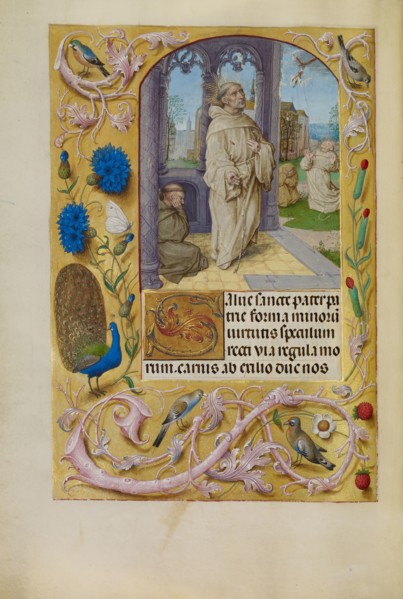 Salue sancte pater pa
trie forma minorū
uirtutis speculum
recti via regula mo
rum.carnis ab exilio duc nos